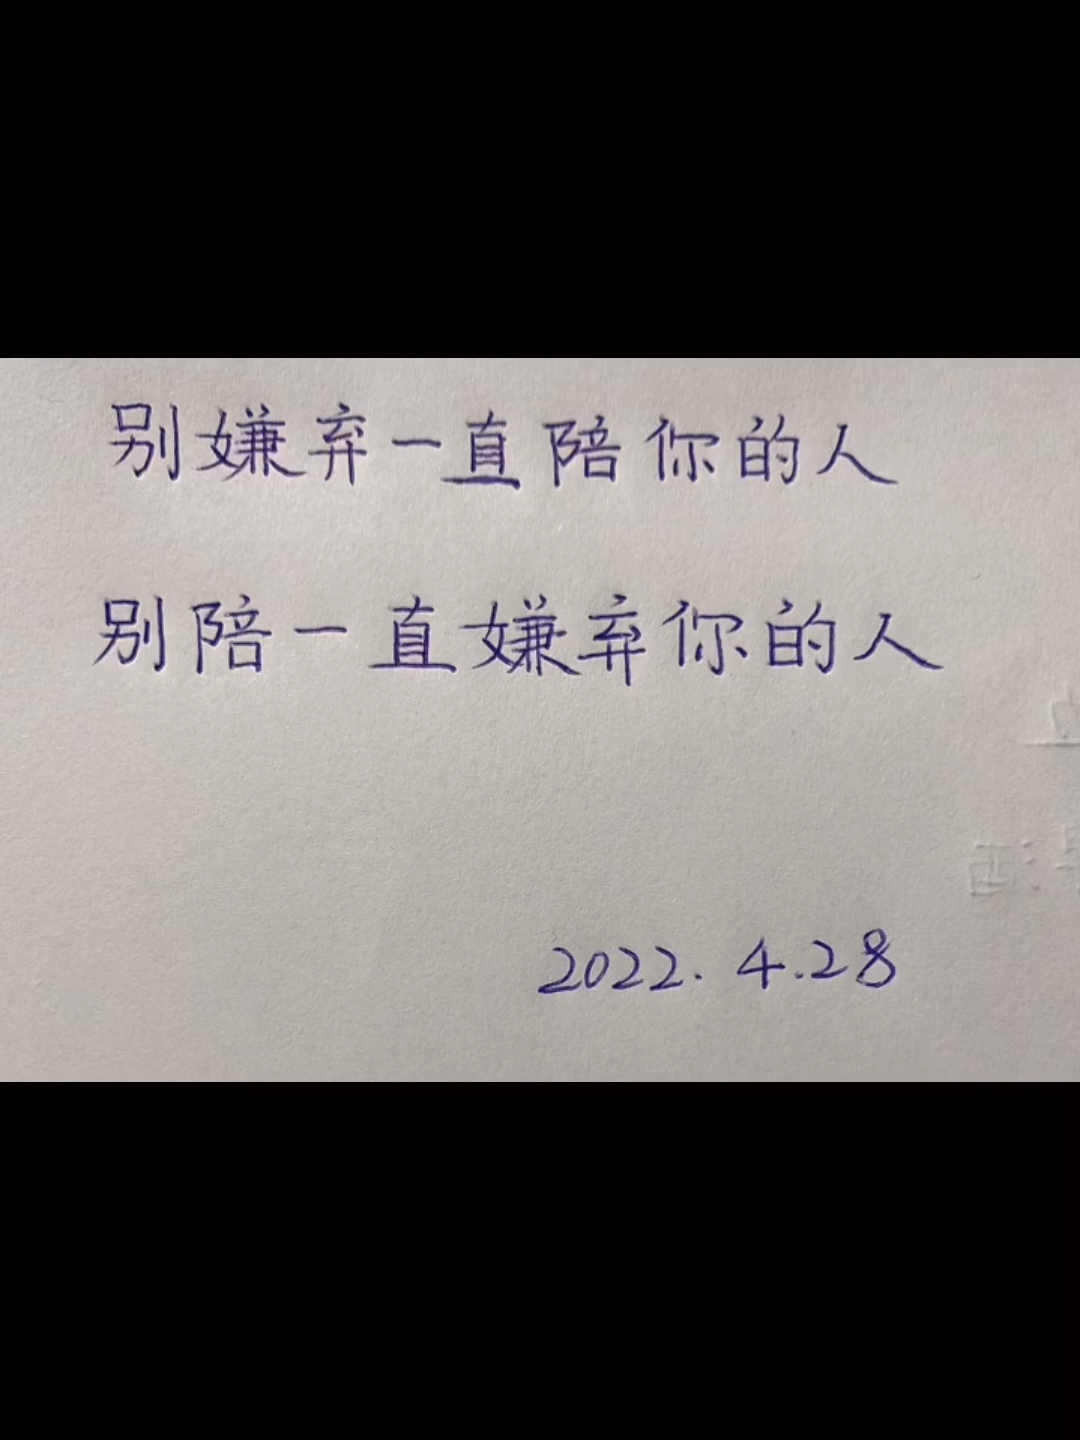 别嫌弃一直陪你的人
别陪一直嫌弃你的人
2022.4.28